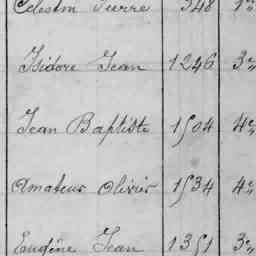 Célestin Pierre 948 1"
Isidore Jean 1246 3"
Jean Baptiste 1504 4"
Amateur Olivier 1534 4"
Eugène Jean 1351 3"